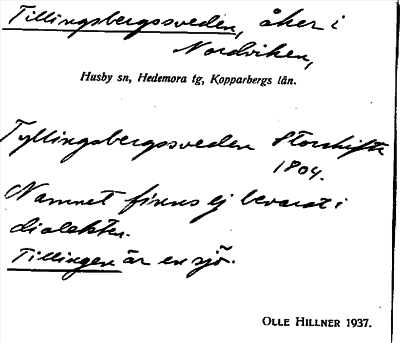 Tillingsbergssveden, åker i
Nordviken,
Husby sn, Hedemora tg, Kopparbergs län.
Tyllingsbergssveden Storskifte
1804.
Namnet finns ej bevarat i
dialekten.
Tillingen är en sjö.
OLLE HILLNER 1937.